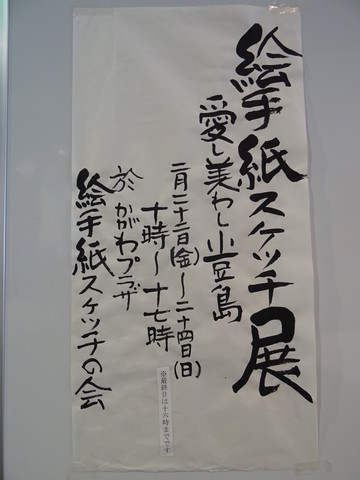 絵手紙スケッチ展
愛し美わし小豆島
二月二十二日(金)～二十四日(日)
十時～十七時
※最終日は十六時までです
於 かがわプラザ
絵手紙スケッチの会